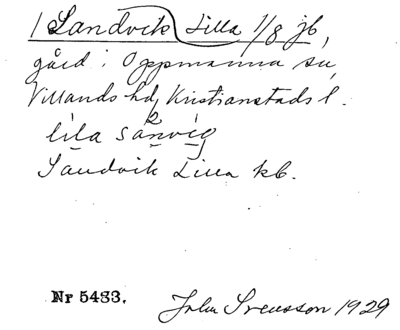 / Sandvik Lilla 1/8 jb,
gård i Oppmanna sn,
Villands hd, Kristianstads l.
lila sanvig
2
Sandvik Lilla kb.
Nr 5483. John Svensson 1929